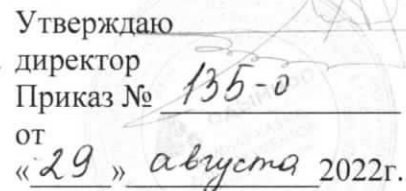 Утверждаю
директор
Приказ № 135-о
от
«29» августа 2022г.